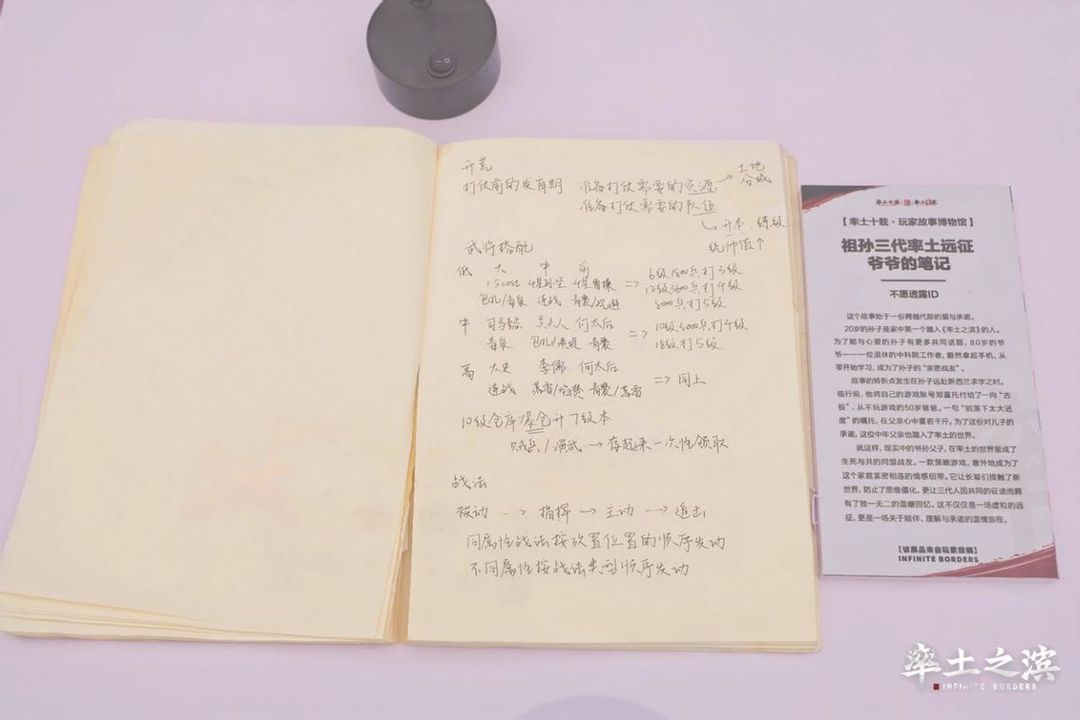 开荒
打仗前的发育期 准备打仗需要的资源 → 土地 分城
准备打仗需要的队伍
↳ 开本、练级
统帅值个
武将搭配
低 大 中 前
1.5cost 4星 4星曹操 => 6级1800兵打3级
12级3600兵打4级
连战 5000兵打5级
中 司马懿 吴夫人 何太后 => 10级5000兵打4级
18级打5级
高 大史 李儒 何太后
连战 => 同上
10级仓库爆仓开7级本
贼兵/演武 → 存起来一次性领取
战法
被动 --> 指挥 --> 主动 --> 追击
同属性战法按放置位置的顺序发动
不同属性按战法类型顺序发动
率土之滨
【率土十载·玩家故事博物馆】
祖孙三代率土远征
爷爷的笔记
不愿透露ID
这个故事始于一份跨越代际的爱与承诺。
20岁的孙子是家中第一个踏入《率土之滨》的人。
为了能与心爱的孙子有更多共同话题，80岁的爷
爷——一位退休的中科院工作者，毅然拿起手机，从
零开始学习，成为了孙子的“亲密战友”。
故事的转折点发生在孙子远赴新西兰求学之时。
临行前，他将自己的游戏账号郑重托付给了一向“古
板”、从不玩游戏的50岁爸爸。一句“别落下太大进
度”的嘱托，在父亲心中重若千斤。为了这份对儿子的
承诺，这位中年父亲也踏入了率土的世界。
就这样，现实中的爷孙父子，在率土的世界里成了
生死与共的同盟战友。一款策略游戏，意外地成为了
这个家庭紧密相连的情感纽带。它让长辈们接触了新
世界，防止了思维僵化，更让三代人因共同的征途而拥
有了独一无二的温暖回忆。这不仅仅是一场虚拟的远
征，更是一场关于陪伴、理解与承诺的温情旅程。
【该展品来自玩家投稿】
INFINITE BORDERS
率土之滨
INFINITE BORDERS